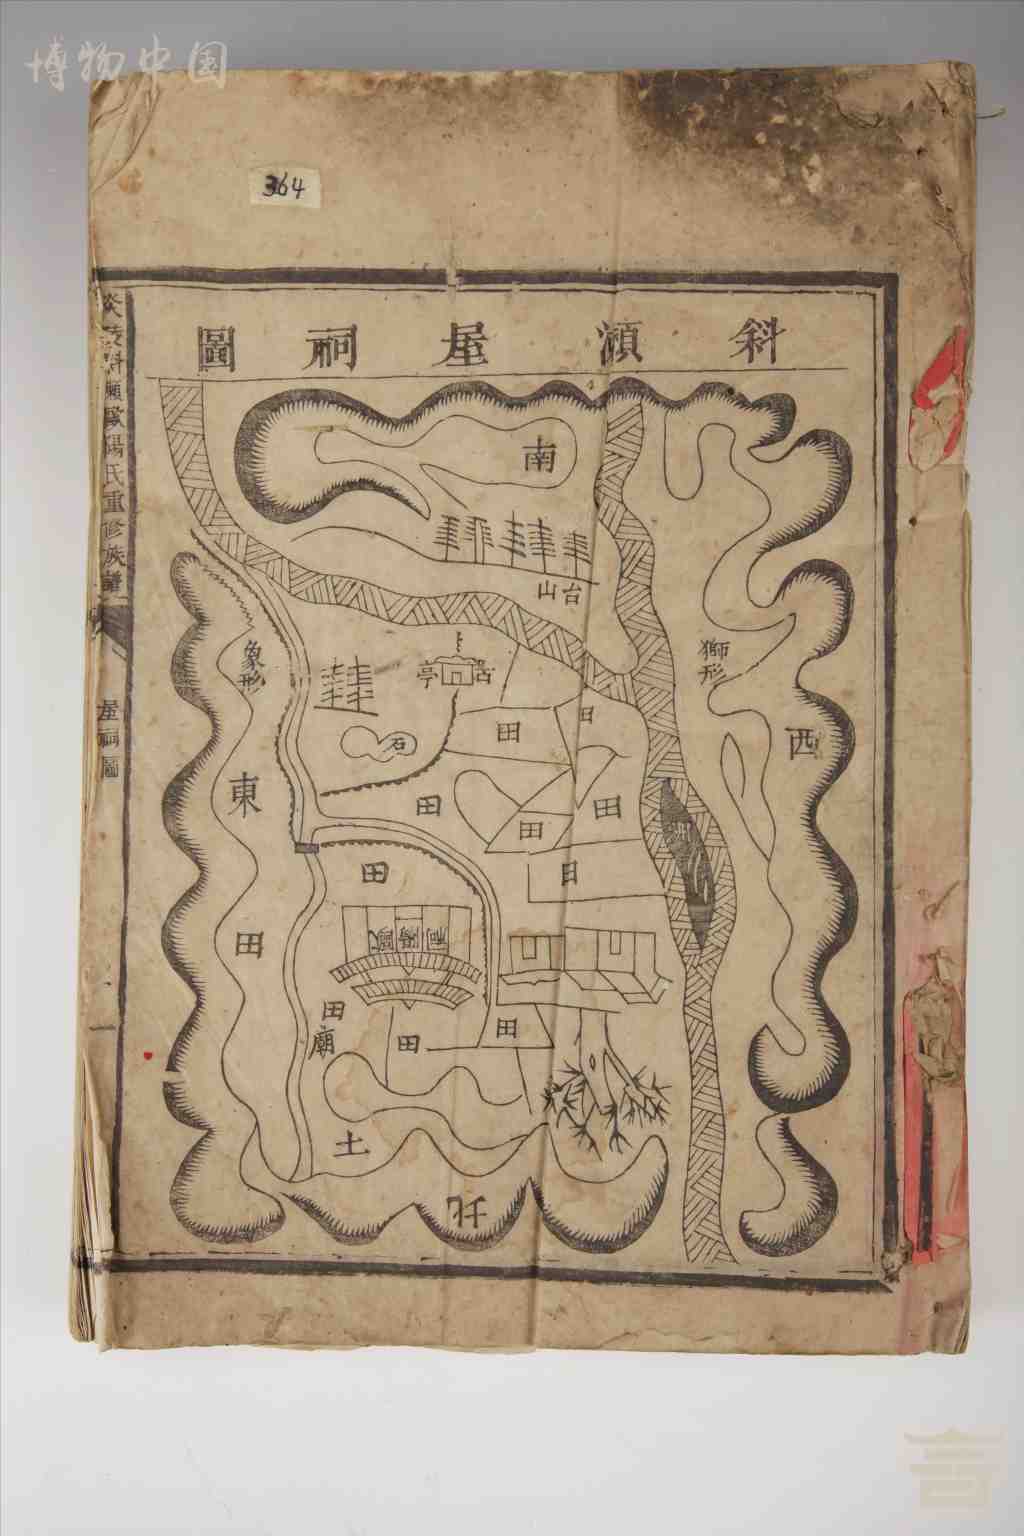 博物中国
364
斜瀬屋祠圖
炎陵斜瀬歐陽氏重修族譜
屋祠圖
一
南
台山
獅形
西
象形
東
古亭
石
田
田
田
田
田
洲
田
田
歐陽祠
田
田
田
廟
土